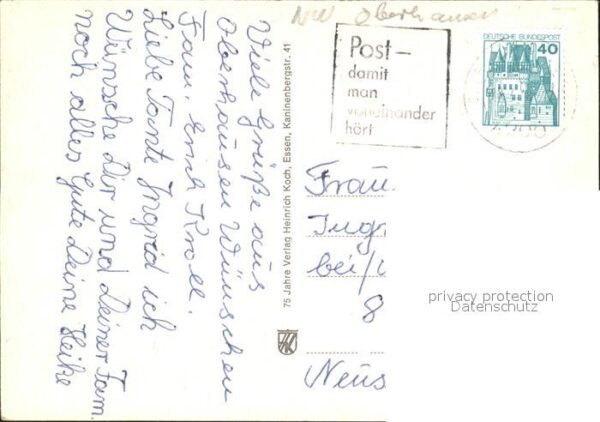 NW Oberhausen
Post–
damit
man
voneinander
hört
DEUTSCHE BUNDESPOST
40
Viele Grüße aus
Oberhausen Wünschen
Fam. Erich Kroll.
Liebe Tante Ingrid ich
Wünsche Dir und Deiner Fam.
noch alles Gute Deine Heike
75 Jahre Verlag Heinrich Koch, Essen, Kaninenbergstr. 41
Frau
Ingr
bei/
8
Neus
privacy protection
Datenschutz